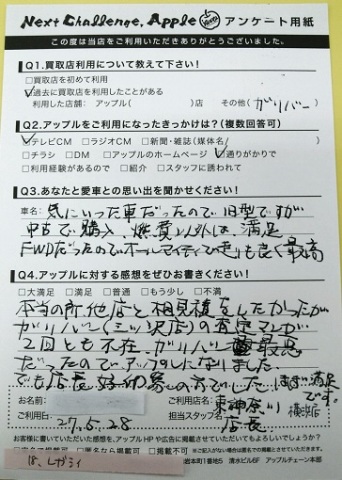 Next Challenge, Apple アンケート用紙
この度は当店をご利用いただきありがとうございました。
Q1.買取店利用について教えて下さい!
□買取店を初めて利用
☑過去に買取店を利用したことがある
利用した店舗: アップル( )店 その他(ガリバー)
Q2.アップルをご利用になったきっかけは?(複数回答可)
☑テレビCM □ラジオCM □新聞・雑誌(媒体名 )
□チラシ □DM □アップルのホームページ ☑通りがかりで
□利用経験があるので □紹介 □スタッフに誘われて
Q3.あなたと愛車との思い出を聞かせください!
車名: 気にいった車だったので旧型ですが
中古で購入、燃費以外は、満足
FWDだったのでオールマイティで も良く最高
Q4.アップルに対する感想をぜひお書きください!
□大満足 □満足 □普通 □もう少し □不満
本当の所他店と相見積をしたかったが
ガリバー(三ツ沢店)の査定マンが
2回とも不在、ガリバー 最悪
だったのでアップルにしなりました
でも店長 好印象の方でした まず満足です。
お名前: ご利用店名: 東神奈川 横浜店
ご利用日: 27.5.28 担当スタッフ名: 店長
お客様に書いていただいた感想を、アップルHPや広告に掲載させていただいてもよろしいでしょうか?
掲載不可 ※ご記入がない場合は匿名での掲載とさせていただきます。
岩本町1番地5 清水ビル6F アップルチェーン本部
18、レガシィ